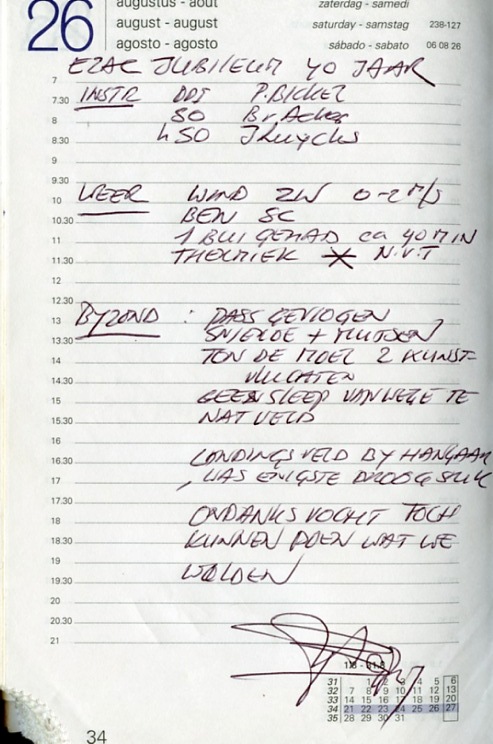 26
augustus - août
august - august
agosto - agosto
zaterdag - samedi
saturday - samstag 238-127
sábado - sabato 06 08 26
EZAC JUBILEUM 40 JAAR
7
7.30 INSTR DDI P. BICKEL
8 SO
8.30 hSO
9
9.30
10 WEER WIND ZW 0-2 M/S
10.30 BEW SC
11 1 BUI GEHAD ca 40 MIN
11.30 THERMIEK N.V.T
12
12.30
13 BYZOND : PASS GEVLOGEN
13.30 + MUTSEN
14 TON DE MOEL 2 KUNST=
VLUCHTEN
14.30
15 GEEN SLEEP VANWEGE TE
15.30 NAT VELD
16
16.30 LANDINGSVELD BY HANGAAR
17 , WAS ENIGSTE DROOG STUK
17.30
18 ONDANKS VOCHT TOCH
18.30 KUNNEN DOEN WAT WE
19
19.30 WILDEN
20
20.30
21
1.8 - 31.8
31 1 2 3 4 5 6
32 7 8 9 10 11 12 13
33 14 15 16 17 18 19 20
34 21 22 23 24 25 26 27
35 28 29 30 31
34